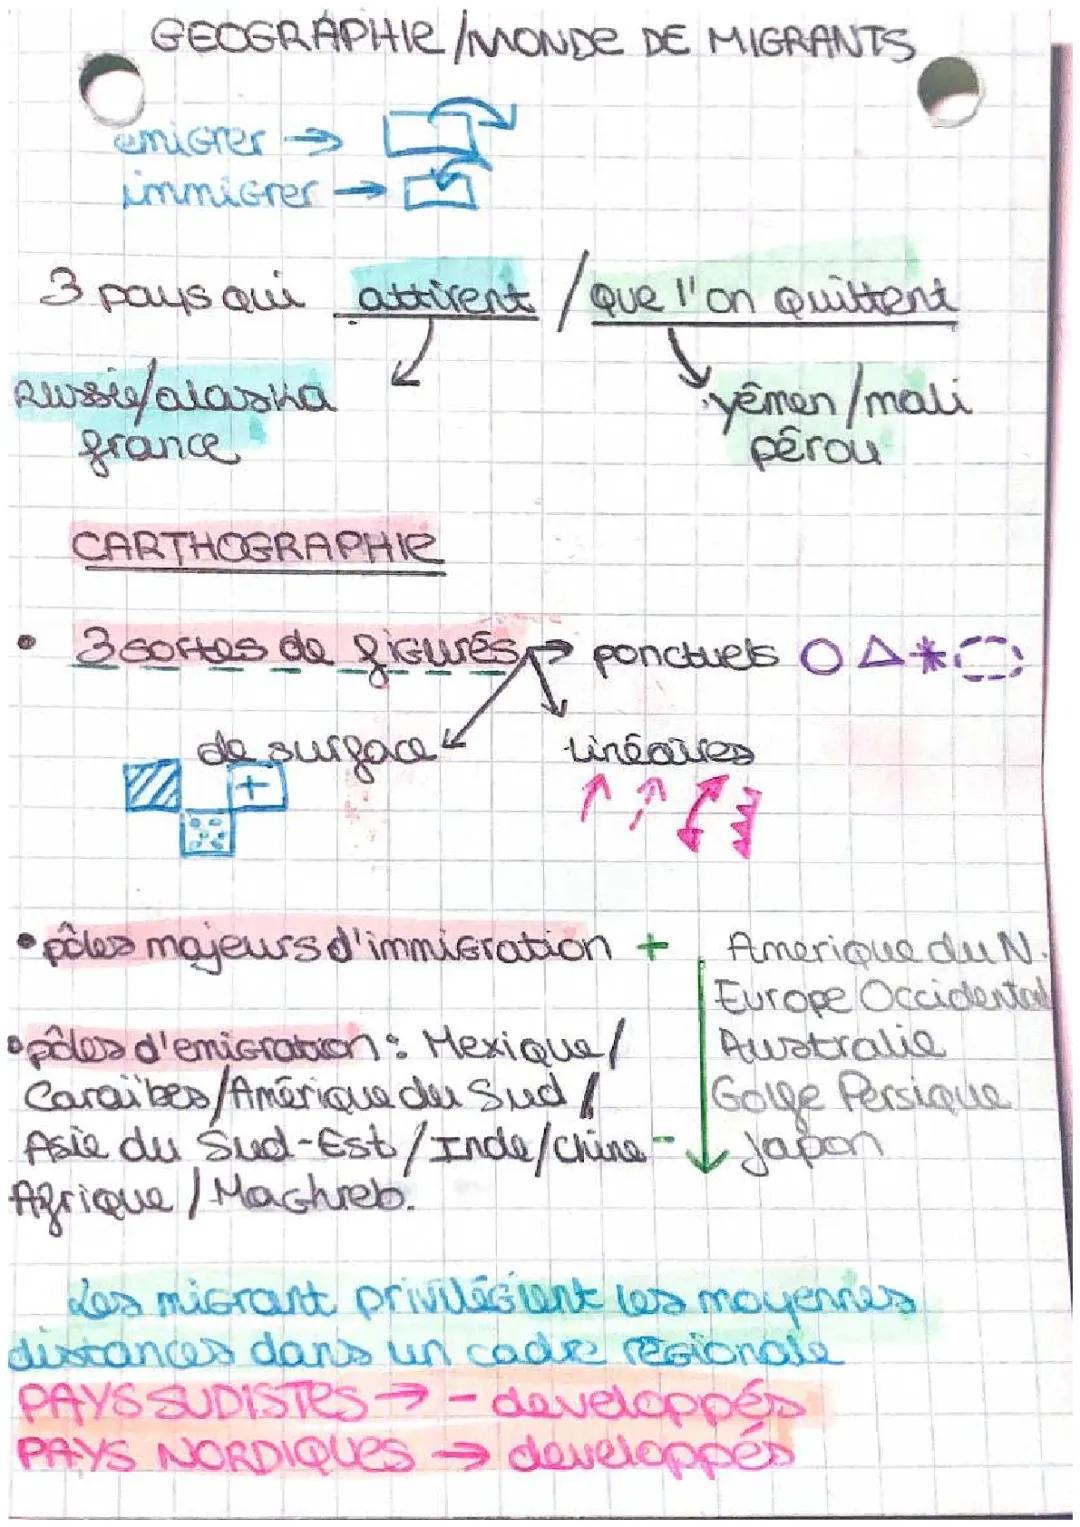 GEOGRAPHIE/MONDE DE MIGRANTS
emigrer →
immigrer →
3 pays qui attirent / que l'on quittent
Russie/alaska
france
yémen/mali
pérou
CARTHOGRAPHIE
• 3 sortes de figurés → ponctuels
de surface
linéaires
• pôles majeurs d'immigration +
Amerique du N.
Europe Occidental
Australie
Golfe Persique
Japon
• pôles d'emigration : Mexique/
Caraïbes/Amérique du Sud/
Asie du Sud-Est/Inde/Chine -
Afrique/Maghreb.
Les migrant privilégient les moyennes
distances dans un cadre régionale
PAYS SUDISTES → - developpés
PAYS NORDIQUES → developpés